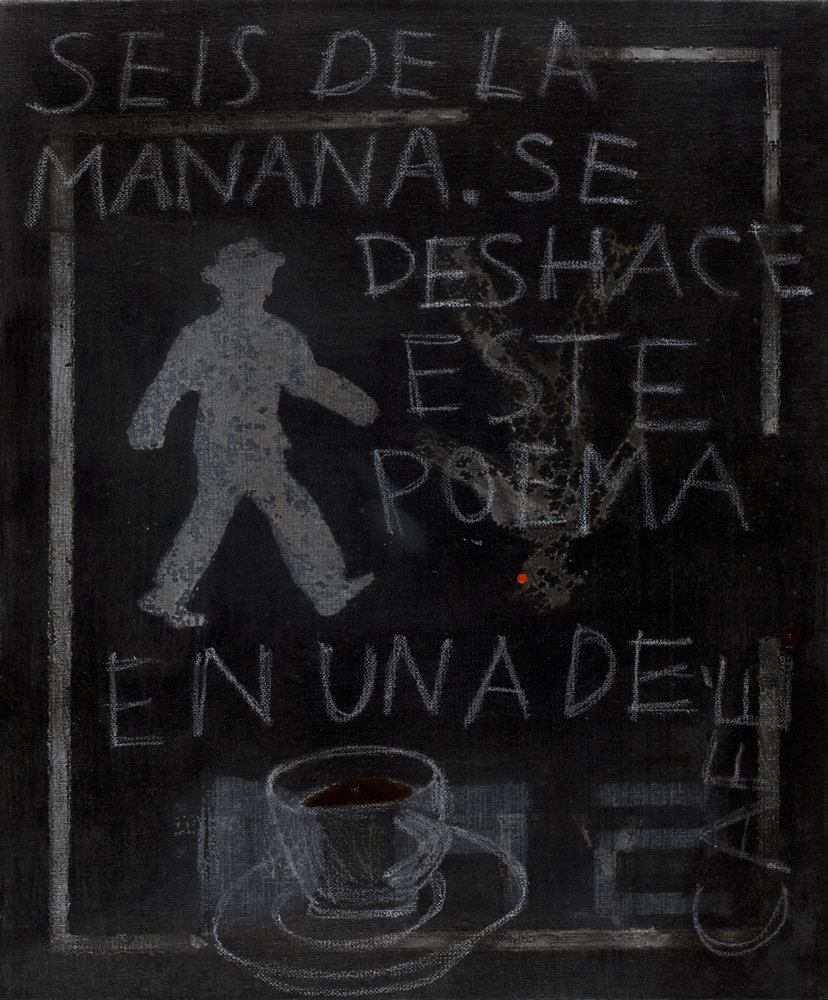 SEIS DE LA
MANANA. SE
DESHACE
ESTE
POEMA
EN UNA DE
CAFÉ